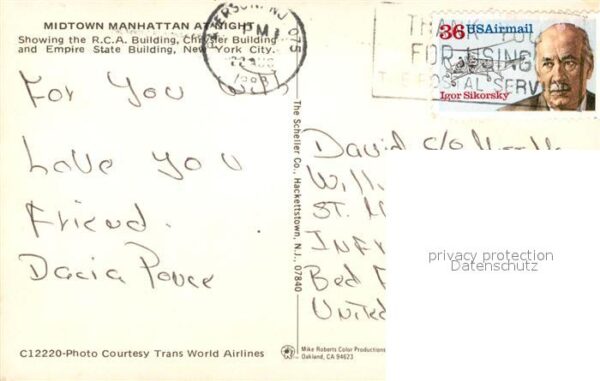 MIDTOWN MANHATTAN AT NIGHT
Showing the R.C.A. Building, Chrysler Building
and Empire State Building, New York City.
PATERSON, NJ 075
PM
1988
THANK YOU
FOR USING
POSTAL SERVICE
36 USAirmail
Igor Sikorsky
For You With
Love You
Friend.
Dacia Ponce
The Scheller Co., Hackettstown, N.J., 07840
David c/o
Will
ST. M
Bed
United
privacy protection
Datenschutz
C12220-Photo Courtesy Trans World Airlines
Mike Roberts Color Productions
Oakland, CA 94623